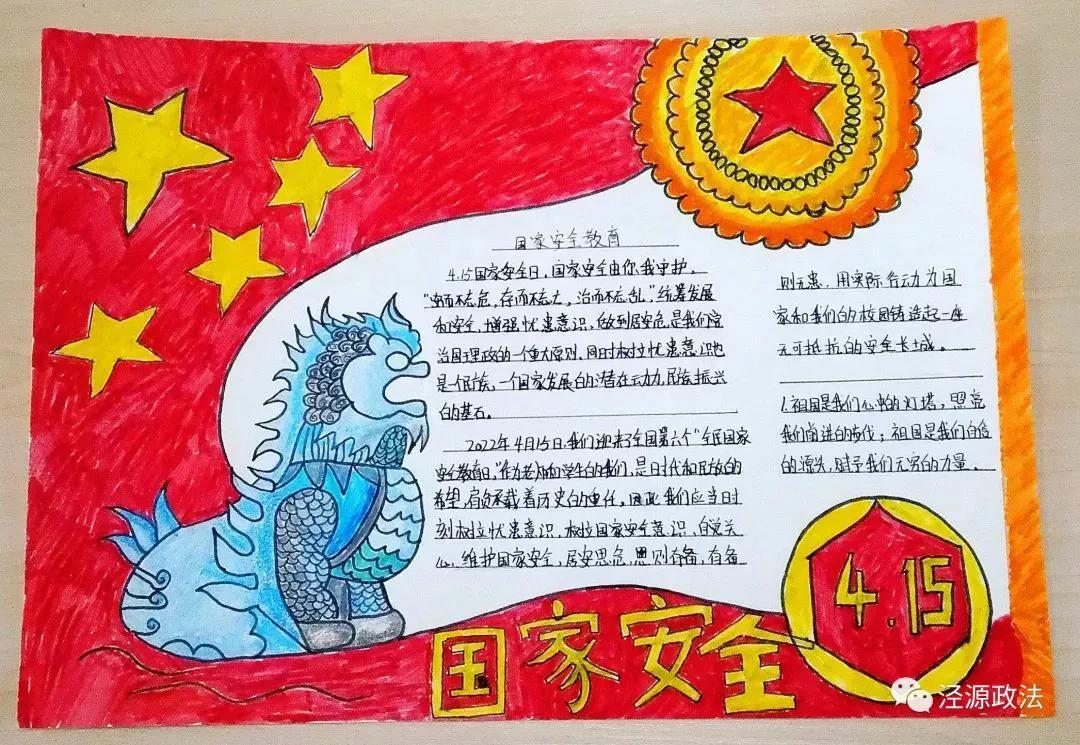 国家安全教育
4.15国家安全日，国家安全由你我守护。
"安而不忘危，存而不忘亡，治而不忘乱，"统筹发展
和安全，增强忧患意识，做到居安危，是我们党
治国理政的一个重大原则，同时树立忧患意识也
是一个民族、一个国家发展的潜在动力，民族振兴
的基石。
2022年4月15日我们迎来了全国第六个"全民国家
安全教育日，"作为老师和学生的我们，是时代和民族的
希望，肩负承载着历史的重任，因此我们应当时
刻树立忧患意识，树立国家安全意识，自觉关
心、维护国家安全，居安思危，思则有备，有备
则无患，用实际行动为国
家和我们的校园铸造起一座
无可抵抗的安全长城。
1.祖国是我们心中的灯塔，照亮
我们前进的步伐；祖国是我们自信
的源头，赋予我们无穷的力量。
国家安全
4.15
泾源政法